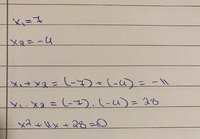 x₁=7
x₂=-4
x₁+x₂=(-7)+(-4)=-11
x₁·x₂=(-7)·(-4)=28
x²+11x+28=0